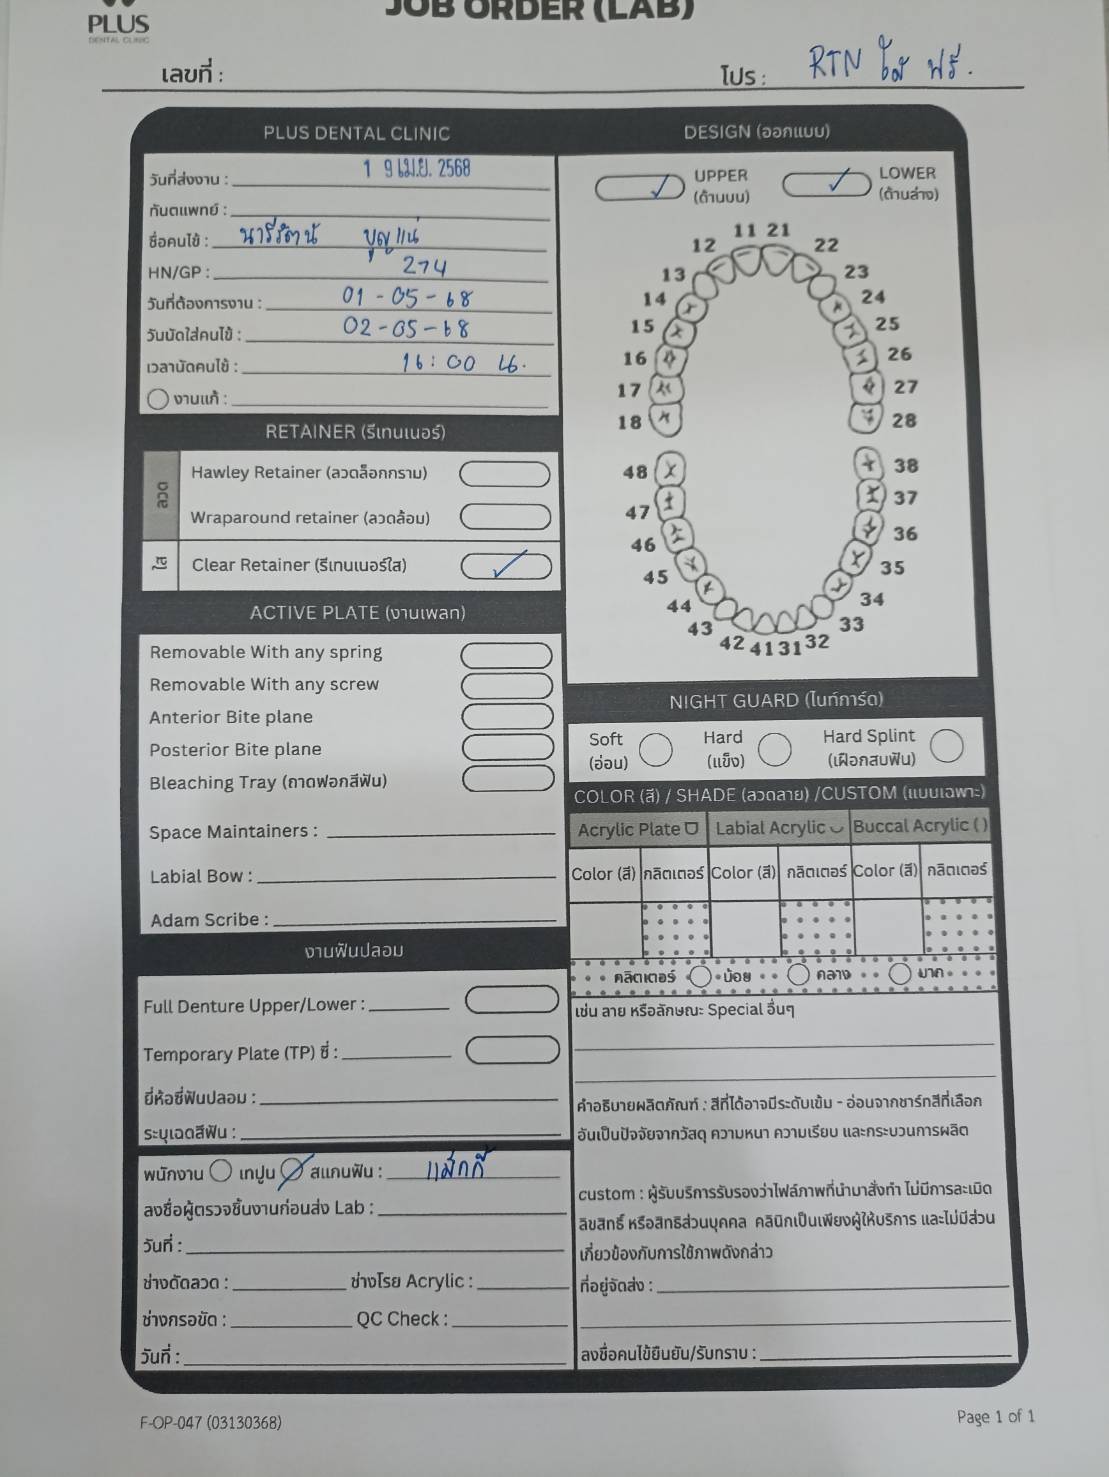 JOB ORDER (LAB)
PLUS
DENTAL CLINIC
เลขที่ :
โปร : RTN ใส ฟรี.
PLUS DENTAL CLINIC
วันที่ส่งงาน : 1 9 เม.ย. 2568
ทันตแพทย์ :
ชื่อคนไข้ : นารีรัตน์ บุญแน่
HN/GP : 274
วันที่ต้องการงาน : 01-05-68
วันนัดใส่คนไข้ : 02-05-68
เวลานัดคนไข้ : 16:00 น.
งานแก้ :
RETAINER (รีเทนเนอร์)
ลวด
Hawley Retainer (ลวดล็อกกราม)
Wraparound retainer (ลวดล้อม)
ใส
Clear Retainer (รีเทนเนอร์ใส) ✓
ACTIVE PLATE (งานเพลท)
Removable With any spring
Removable With any screw
Anterior Bite plane
Posterior Bite plane
Bleaching Tray (ถาดฟอกสีฟัน)
Space Maintainers :
Labial Bow :
Adam Scribe :
งานฟันปลอม
Full Denture Upper/Lower :
Temporary Plate (TP) ซี่ :
ยี่ห้อซี่ฟันปลอม :
ระบุเฉดสีฟัน :
พนักงาน เทปูน สแกนฟัน : แม็กกี้
ลงชื่อผู้ตรวจชิ้นงานก่อนส่ง Lab :
วันที่ :
ช่างดัดลวด : ช่างโรย Acrylic :
ช่างกรอขัด : QC Check :
วันที่ :
DESIGN (ออกแบบ)
✓ UPPER ✓ LOWER
(ด้านบน) (ด้านล่าง)
11 21
12 22
13 23
14 24
15 25
16 26
17 27
18 28
48 38
47 37
46 36
45 35
44 34
43 33
42 41 31 32
NIGHT GUARD (ไนท์การ์ด)
Soft Hard Hard Splint
(อ่อน) (แข็ง) (เฝือกสบฟัน)
COLOR (สี) / SHADE (ลวดลาย) /CUSTOM (แบบเฉพาะ)
Acrylic Plate Labial Acrylic Buccal Acrylic ( )
Color (สี) กลิตเตอร์ Color (สี) กลิตเตอร์ Color (สี) กลิตเตอร์
กลิตเตอร์ น้อย กลาง มาก
เช่น ลาย หรือลักษณะ Special อื่นๆ
คำอธิบายผลิตภัณฑ์ : สีที่ได้อาจมีระดับเข้ม - อ่อนจากชาร์ทสีที่เลือก
อันเป็นปัจจัยจากวัสดุ ความหนา ความเรียบ และกระบวนการผลิต
custom : ผู้รับบริการรับรองว่าไฟล์ภาพที่นำมาสั่งทำ ไม่มีการละเมิด
ลิขสิทธิ์ หรือสิทธิส่วนบุคคล คลินิกเป็นเพียงผู้ให้บริการ และไม่มีส่วน
เกี่ยวข้องกับการใช้ภาพดังกล่าว
ที่อยู่จัดส่ง :
ลงชื่อคนไข้ยืนยัน/รับทราบ :
F-OP-047 (03130368)
Page 1 of 1